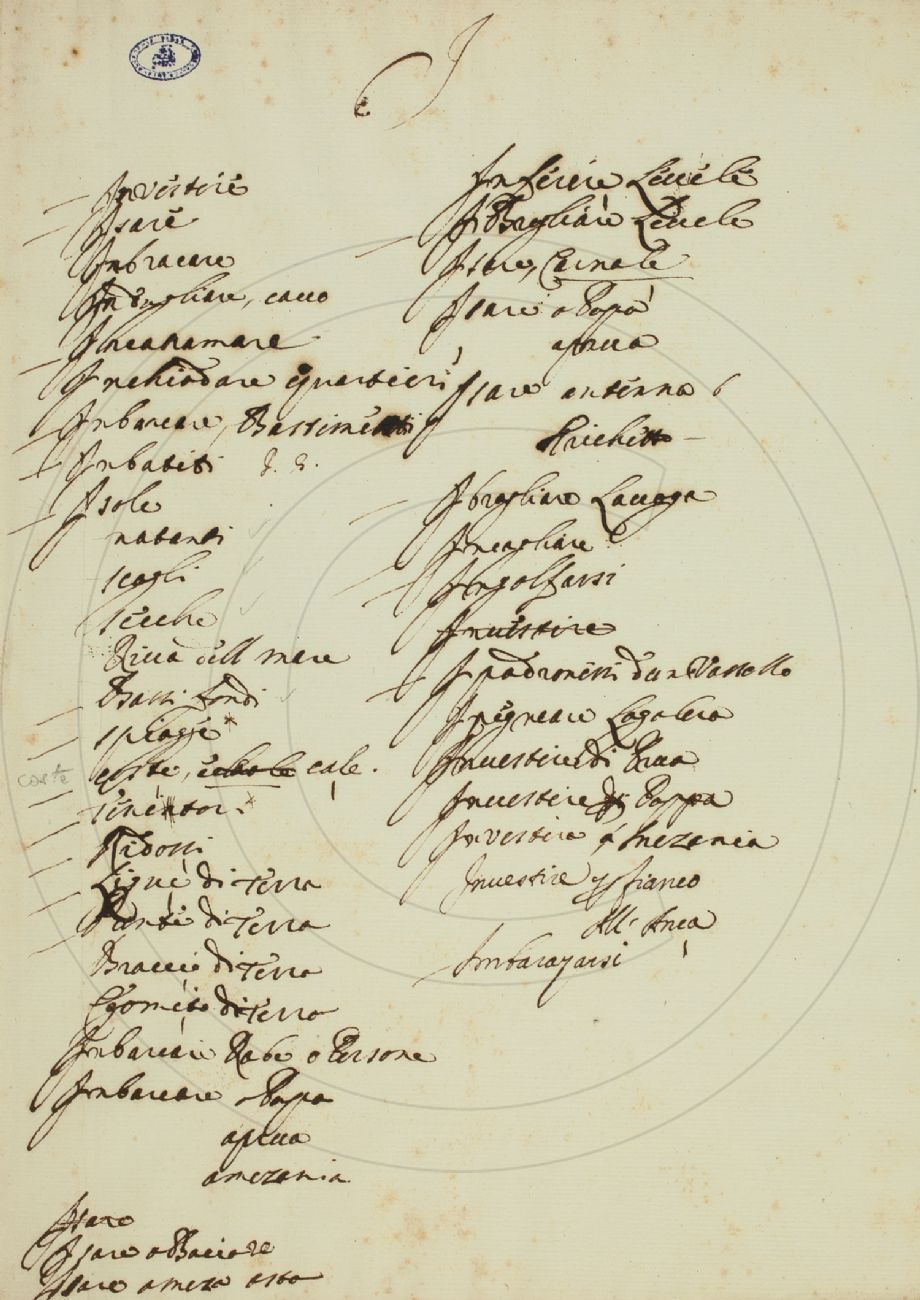 I
Investire
Isare
Inbracare
Inbrogliare, cavo
Incanamare
Inchiodare quartieri
Inbarcare, Bastimenti
Inbatiti
Isole
natanti
scogli
secche
Riva dell mare
Bassi fondi
spiagge *
coste, cale.
costе
Ridossi
Ligue di Terra
Punte di Terra
Braccio di Terra
Gomito di Terra
Inbarcare Robe o Persone
Inbarcare a Popa
a prua
a mezania
Isare
Isare a Baciare
Isare a meza asta
Inferire Le Vele
Inbrogliare Le Vele
Isare,
Isare a Popa
a prua
Isare antenna
Trichetto
Ibrogliare La
Incagliare
Ingolfarsi
Investire
Ipadronirsi d'un Vascello
Investire di Prua
Investire di Poppa
Investire p Mezania
Investire p fianco
All'
Imbarazarsi